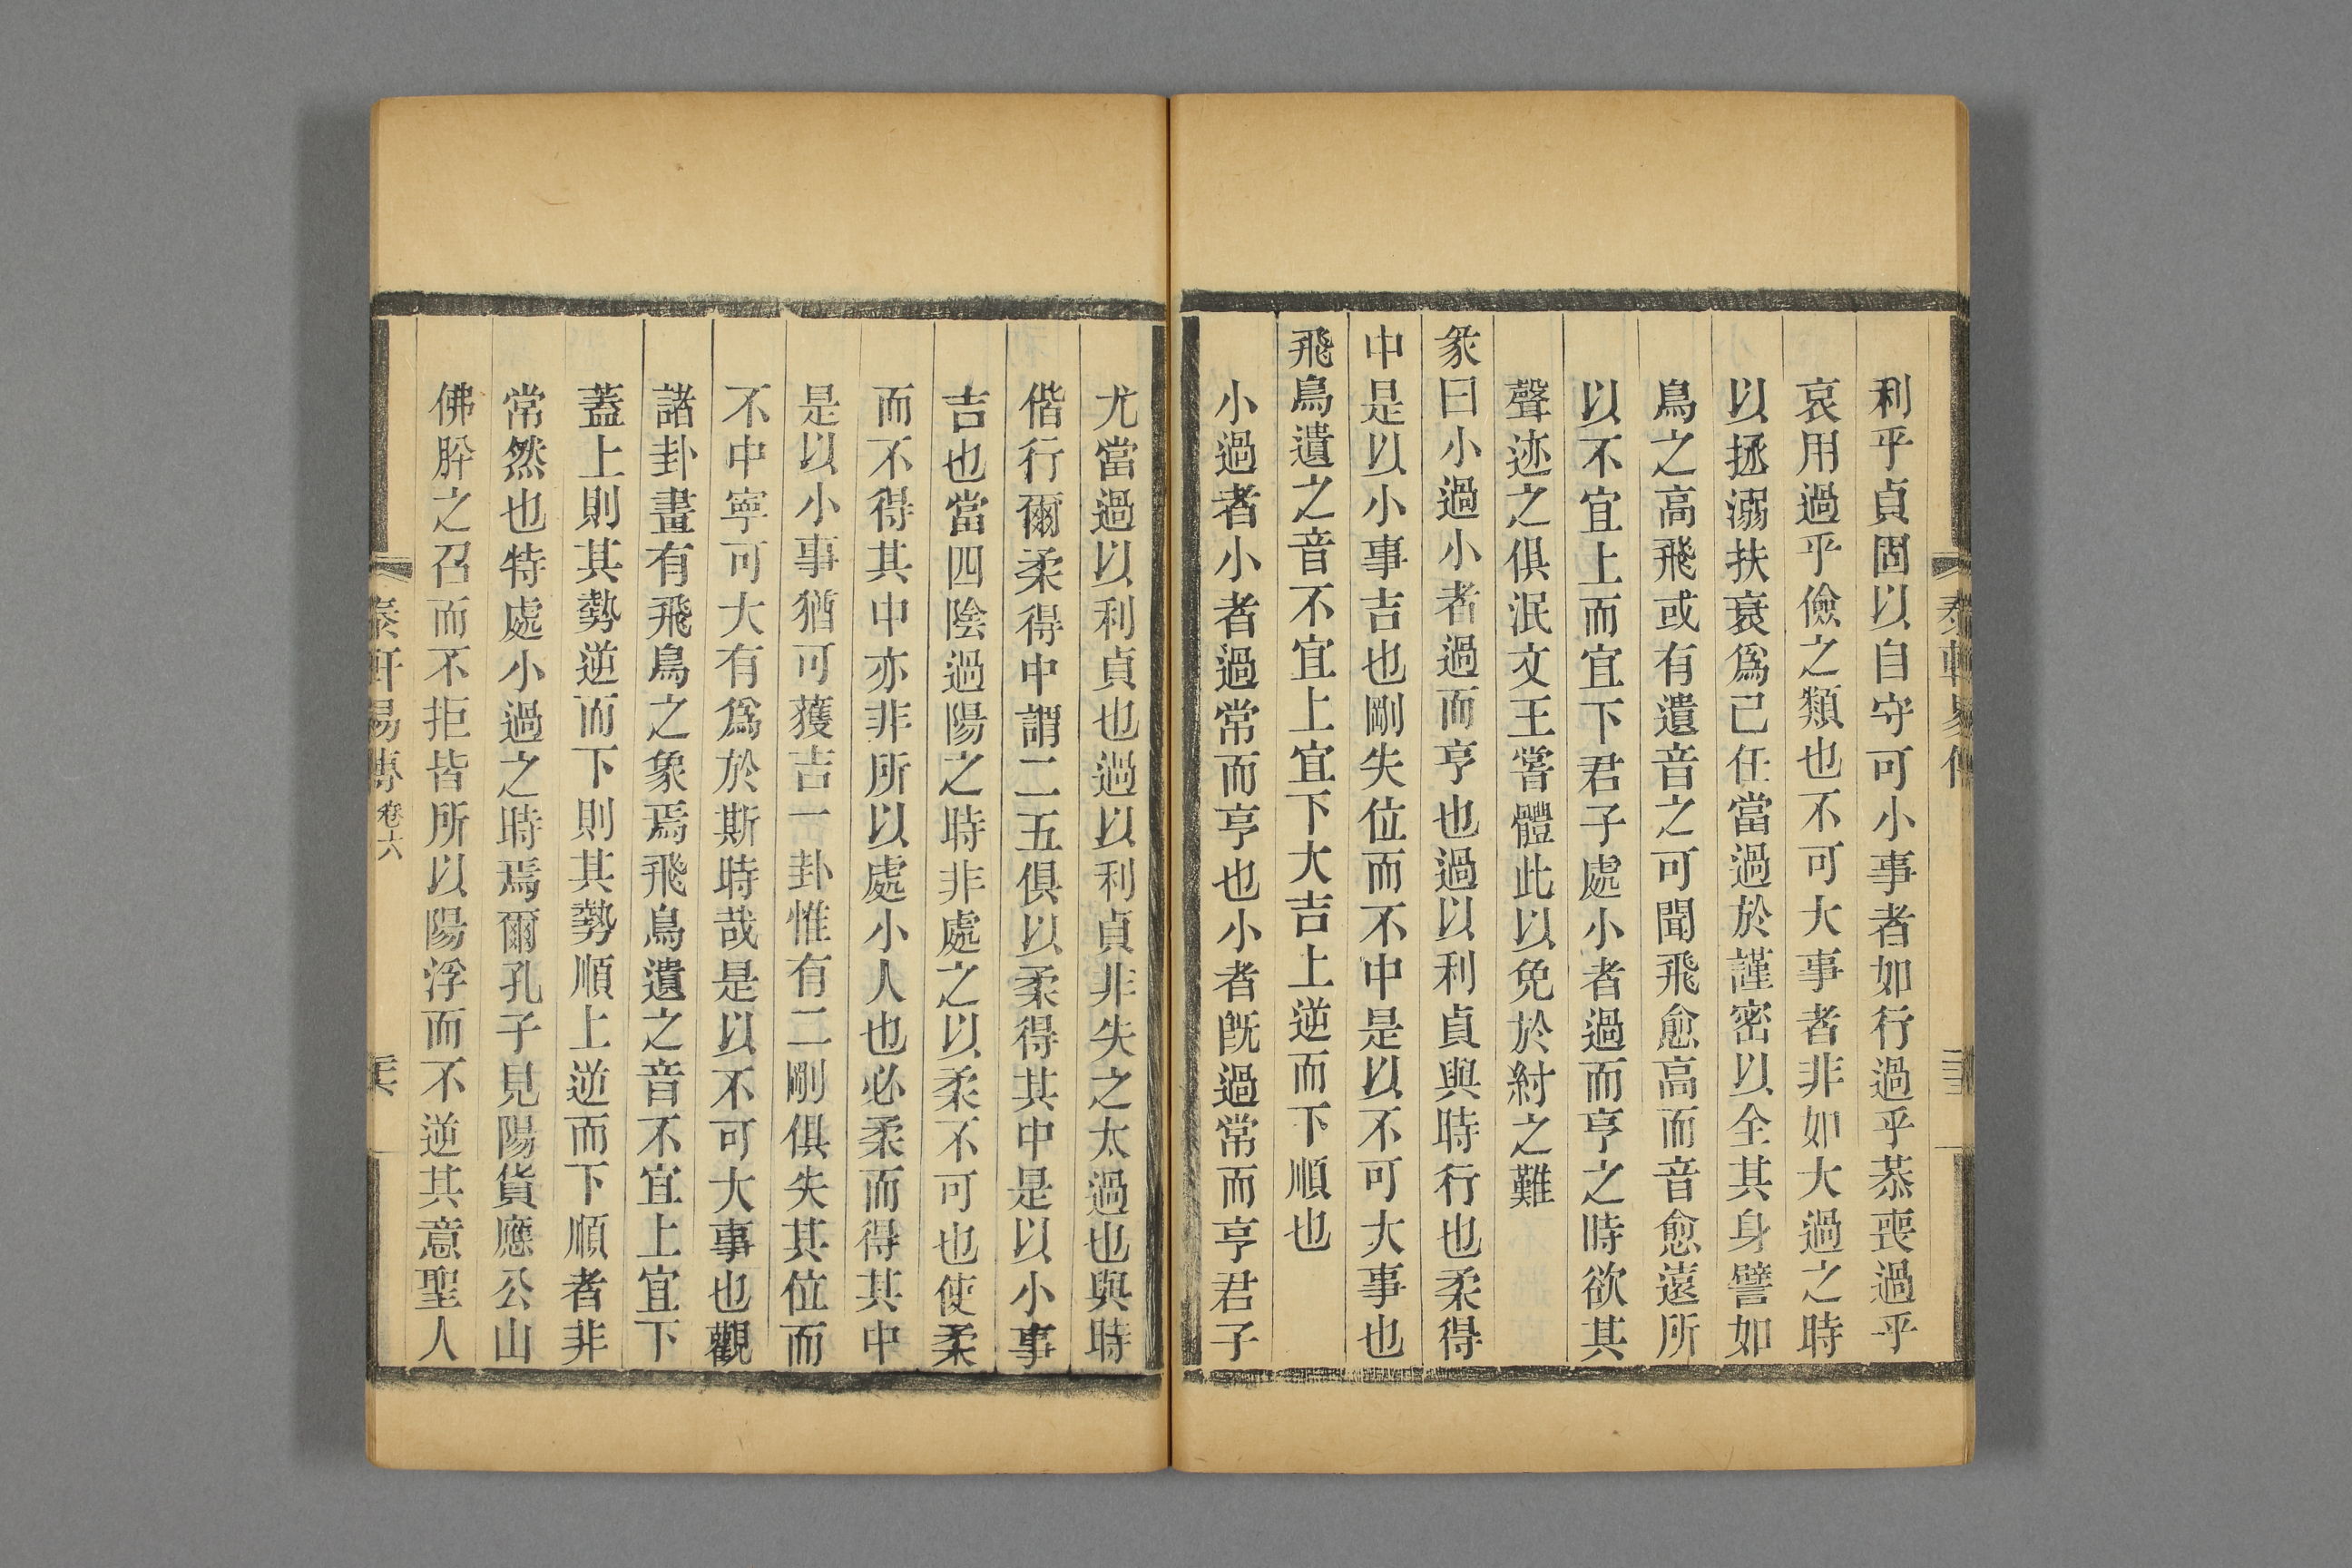 利乎貞固以自守可小事者如行過乎恭喪過乎
哀用過乎儉之類也不可大事者非如大過之時
以拯溺扶衰爲己任當過於謹密以全其身譬如
鳥之高飛或有遺音之可聞飛愈高而音愈遠所
以不宜上而宜下君子處小者過而亨之時欲其
聲迹之俱泯文王嘗體此以免於紂之難
彖曰小過小者過而亨也過以利貞與時行也柔得
中是以小事吉也剛失位而不中是以不可大事也
飛鳥遺之音不宜上宜下大吉上逆而下順也
小過者小者過常而亨也小者旣過常而亨君子
尤當過以利貞也過以利貞非失之太過也與時
偕行爾柔得中謂二五俱以柔得其中是以小事
吉也當四陰過陽之時非處之以柔不可也使柔
而不得其中亦非所以處小人也必柔而得其中
是以小事猶可獲吉一卦惟有二剛俱失其位而
不中寧可大有爲於斯時哉是以不可大事也觀
諸卦畫有飛鳥之象焉飛鳥遺之音不宜上宜下
蓋上則其勢逆而下則其勢順上逆而下順者非
常然也特處小過之時焉爾孔子見陽貨應公山
佛肸之召而不拒皆所以陽浮而不逆其意聖人
泰軒易傳 卷六